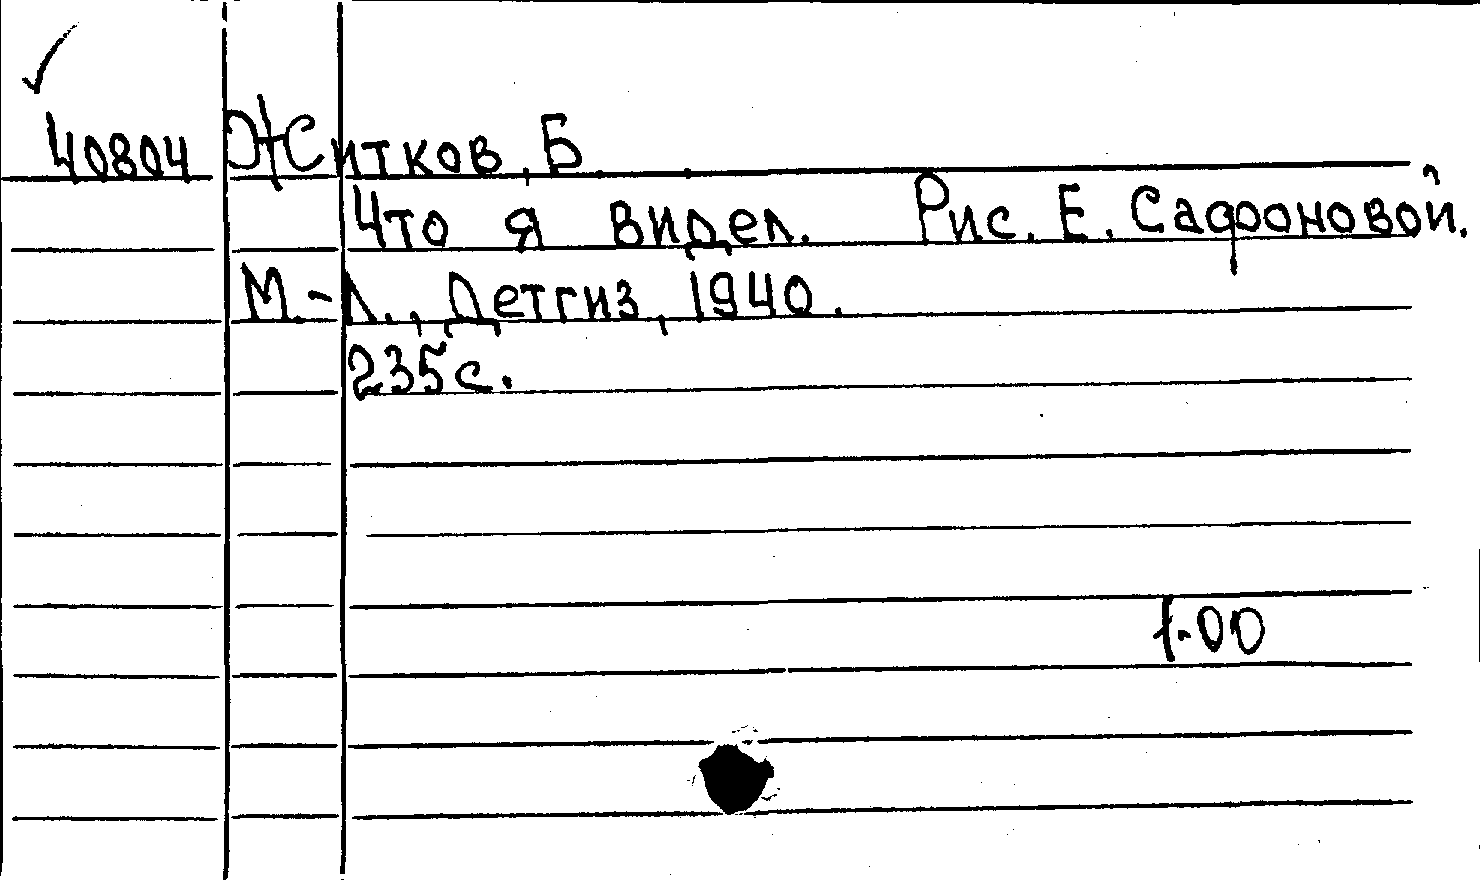 40804 Житков, Б.
Что я видел. Рис. Е. Сафоновой.
М.-Л., Детгиз, 1940.
235 с.
1.00